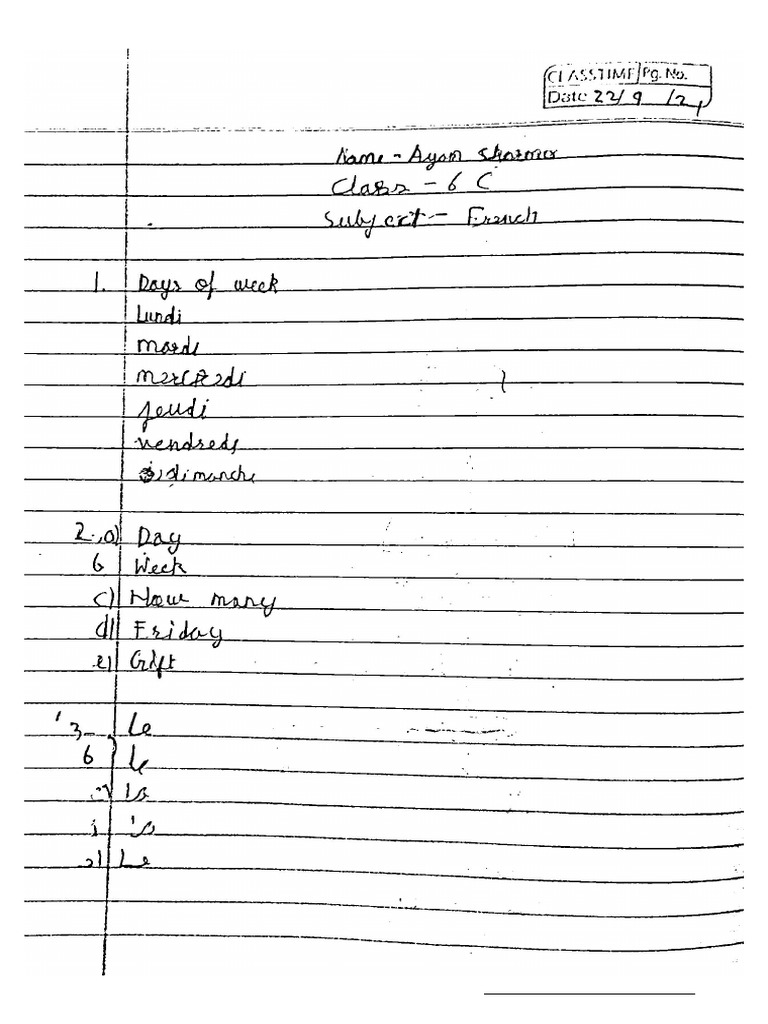 CLASSTIME Pg. No.
Date 22/9/21
Name - Ayan Sharma
Class - 6 C
Subject - French
1. Days of week
Lundi
mardi
mercredi
jeudi
vendredi
dimanche
2. a) Day
b Week
c) How many
d) Friday
e) Gift
3 Le
b Le
c) La
La
e) Le